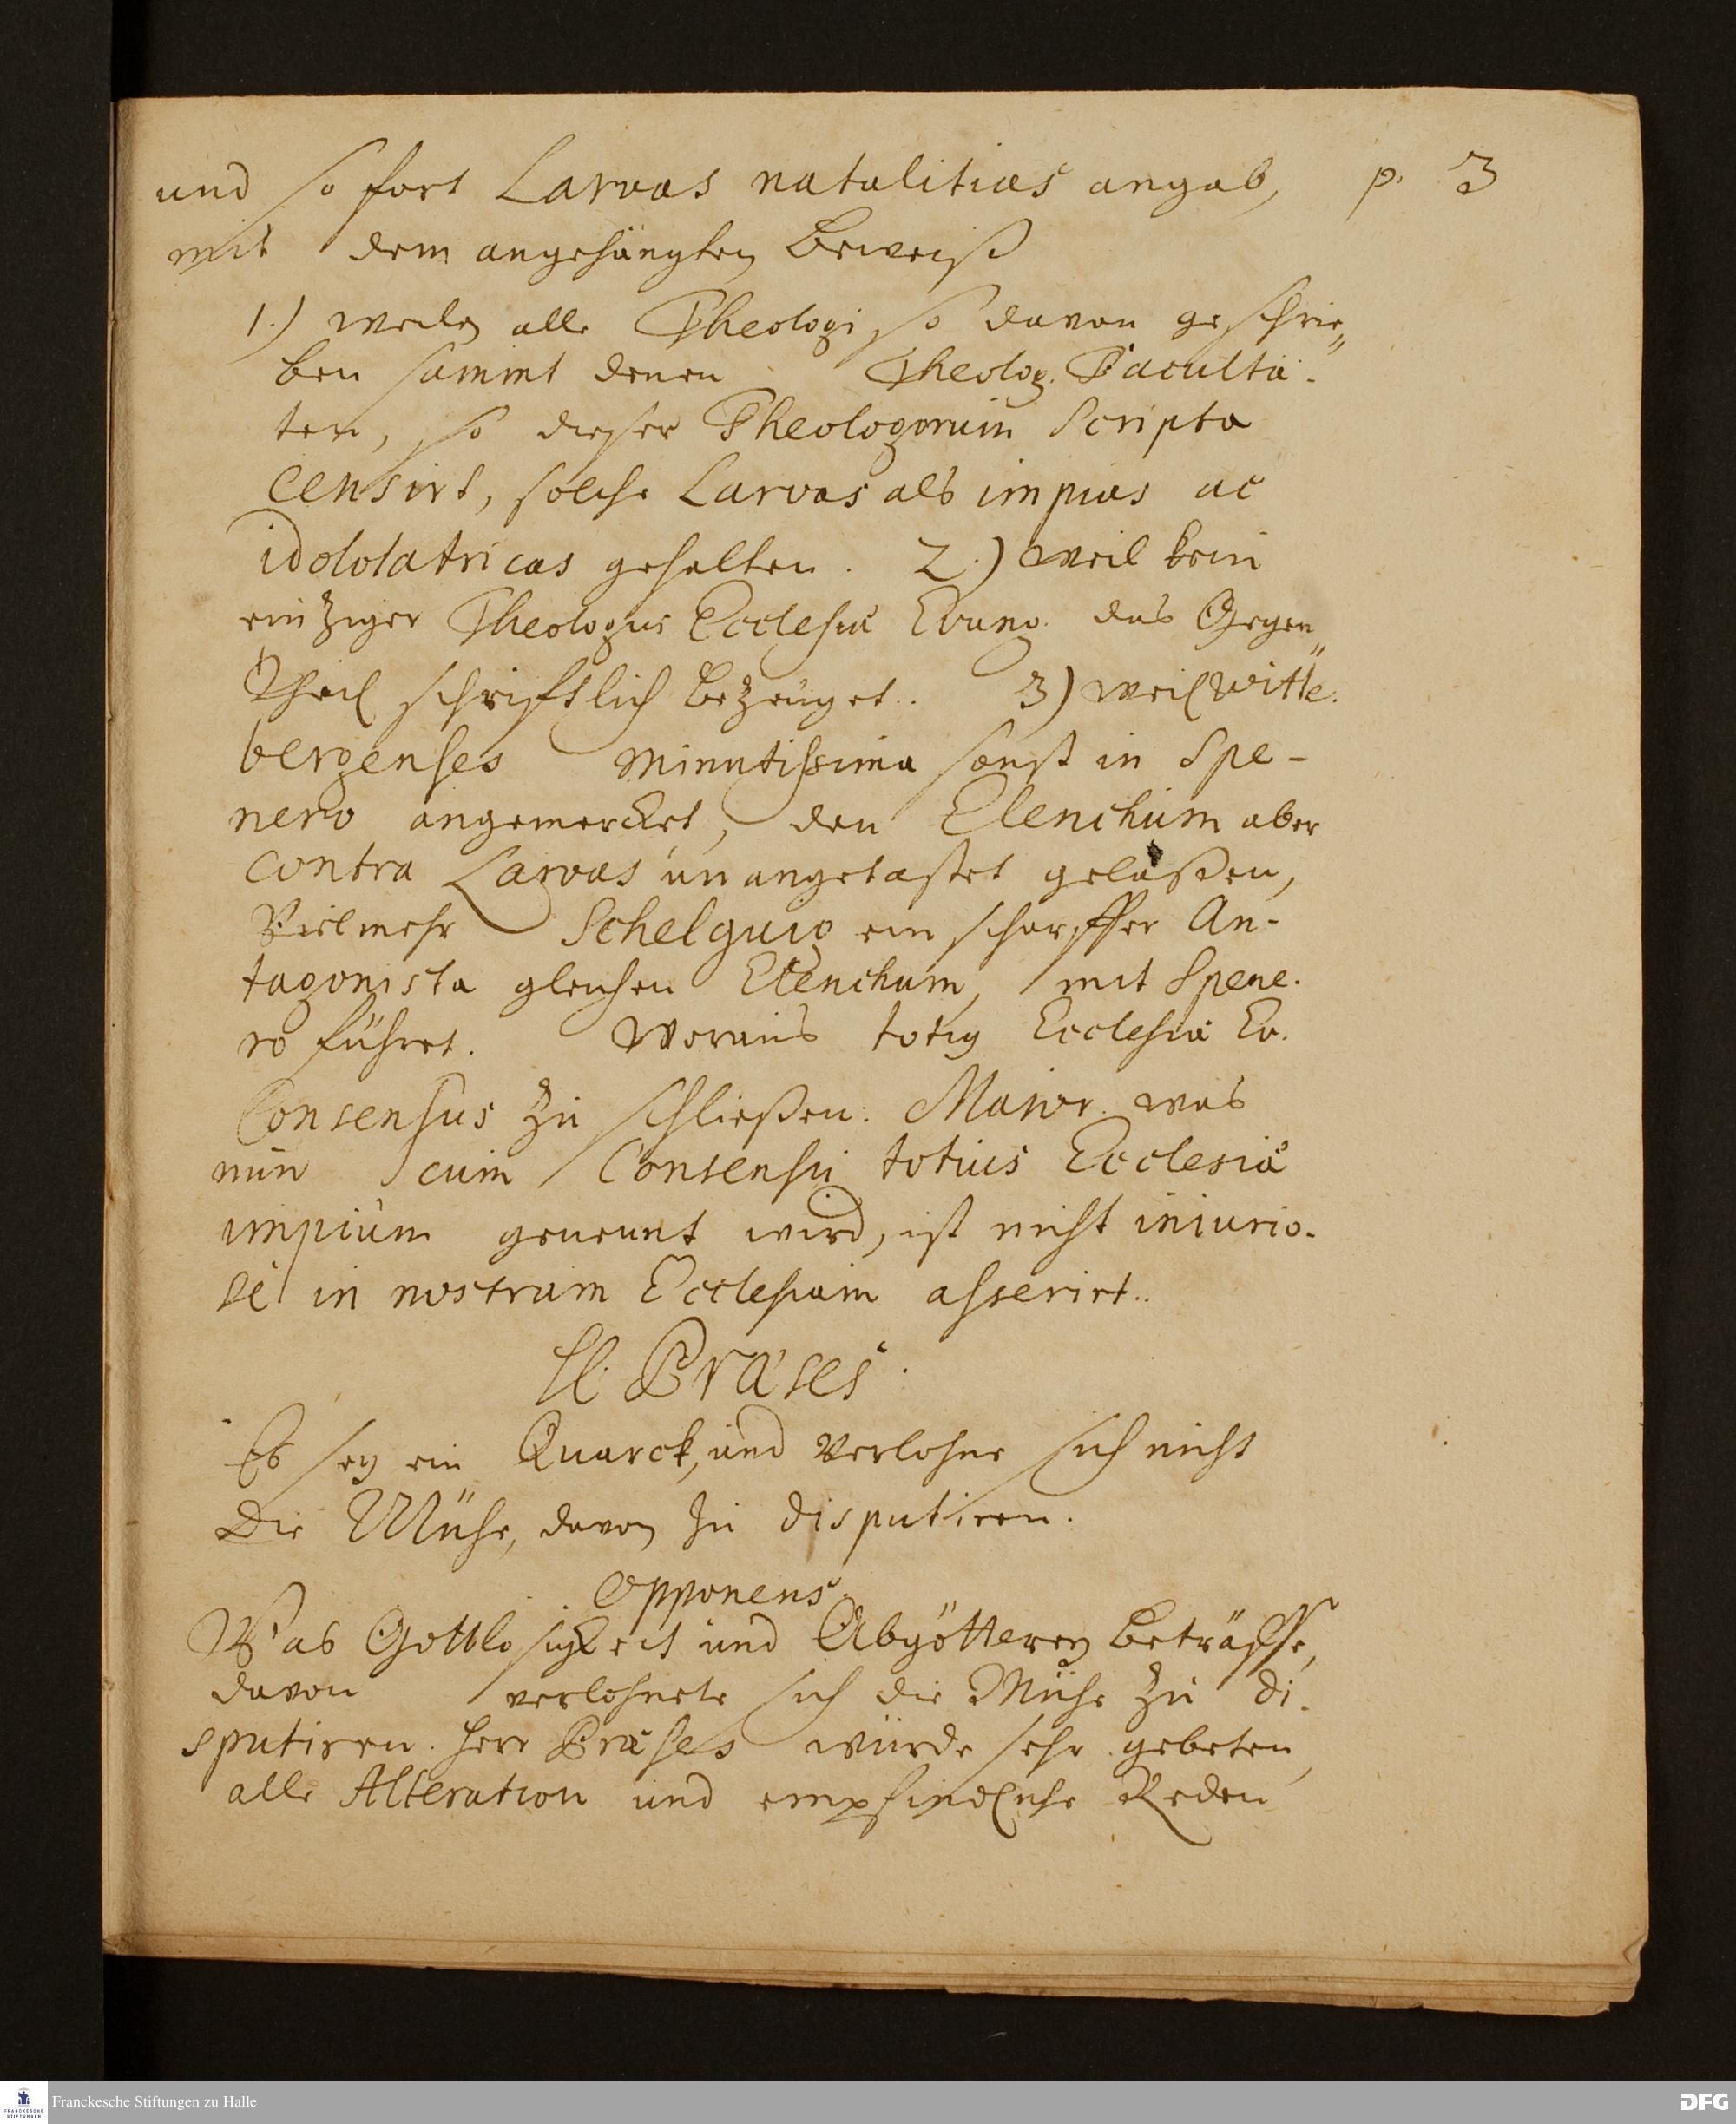 und so fort Larvas natalitias angab, p. 3
mit dem angehängten Beweiß
1.) weilen alle Theologi so davon geschrie„
ben sammt denen Theolog. Facultä-
ten, so dieser Theologorum Scripta
censirt, solche Larvas als impias ac
idololatricas gehalten. 2.) weil kein
eintziger Theologus Ecclesiæ Evang. das Gegen„
Theil schrifftlich bezeuget. 3) weil Witte-
bergenses minutissima sonst in Spe-
nero angemercket, den Elenchum aber
contra Larvas unangetastet gelaßen,
Vielmehr Schelguig ein scharffer An-
tagonista gleichen Elenchum, mit Spene-
ro führet. Woraus totig Ecclesiæ Ev.
Consensus zu schließen. Maior. was
nun cum Consensu totius Ecclesiæ
impium genennt wird, ist nicht iniurio-
se in nostram Ecclesiam asserirt.
H. Præses.
Es sey ein Quarck, und verlohne sich nicht
Die Mühe, davon zu disputiren.
Opponens.
Was Gottlosigkeit und Abgötterey beträffe,
davon verlohnete sich die Mühe zu di-
sputiren. Herr Præses würde sehr gebeten,
alle Alteration und empfindliche Reden
Franckesche Stiftungen zu Halle
FRANCKESCHE
STIFTUNGEN
DFG